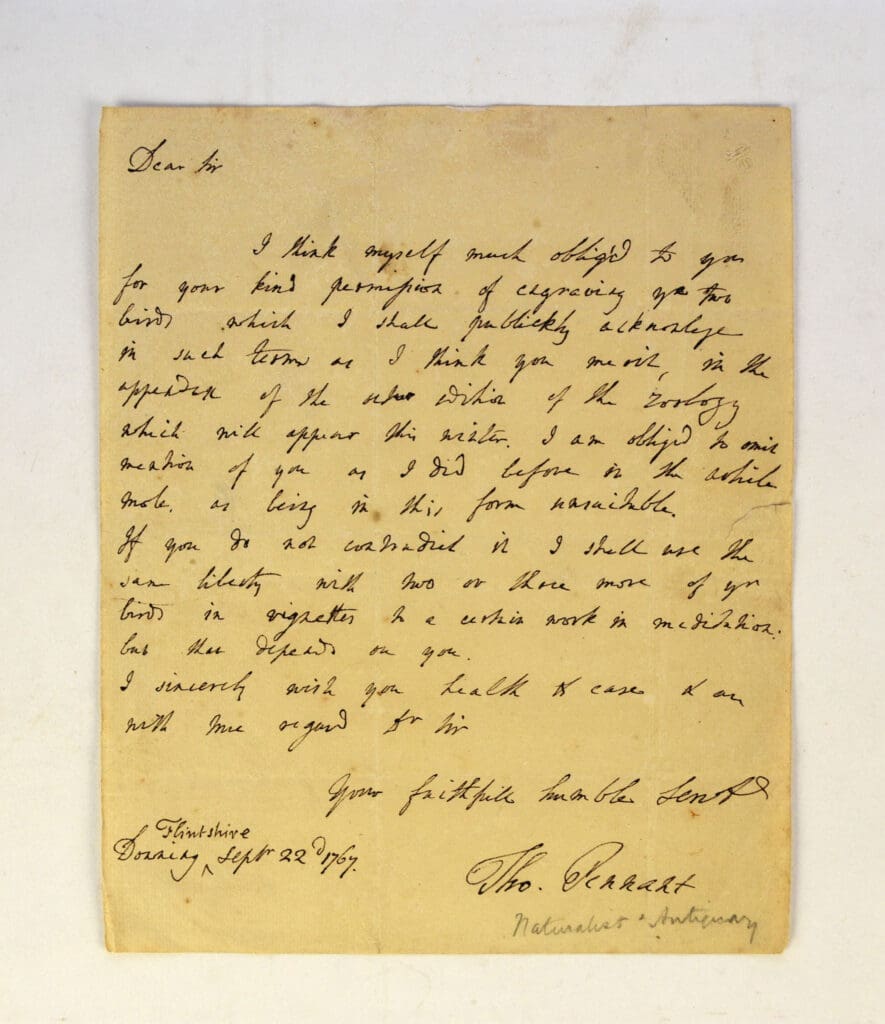 Dear Sir
I think myself much oblig'd to you
for your kind permission of engraving yr two
birds which I shall publickly acknowlege
in such terms as I think you merit, in the
appendix of the edition of the Zoology
which will appear this winter. I am oblig'd to omit
mention of you as I did before in the article
mole, as being in this form unsuitable.
If you do not contradict it I shall use the
same liberty with two or three more of yr
birds in vignettes to a certain work in meditation.
but that depends on you.
I sincerely wish you health & ease & am
with true regard Dr Sir
Your faithfull humble Servt
Flintshire
Downing Septr 22d 1767.
Tho. Pennant
Naturalist & Antiquary